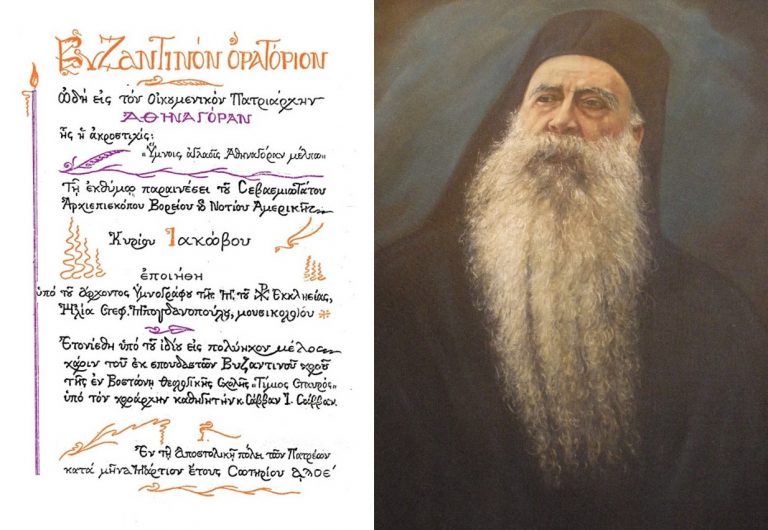 Βυζαντινὸν ὁρατόριον
ᾠδὴ εἰς τὸν Οἰκουμενικὸν Πατριάρχην
ἈΘΗΝΑΓΌΡΑΝ
ἧς ἡ ἀκροστιχίς:
«Ὕμνοις, ἀγλαοῖς Ἀθηναγόραν μέλπω»
Τῇ ἐκθύμῳ παραινέσει τοῦ Σεβασμιωτάτου
Ἀρχιεπισκόπου Βορείου & Νοτίου Ἀμερικῆς
Κυρίου Ἰακώβου
ἐποιήθη
ὑπὸ τοῦ ἄρχοντος Ὑμνογράφου τῆς τοῦ Χ Ἐκκλησίας,
Ἠλία Στεφ. μουσικολόγου
Ἐτονίσθη ὑπὸ τοῦ ἰδίου εἰς πολύηχον μέλος
χάριν τοῦ ἐκ σπουδαστῶν Βυζαντινοῦ χοροῦ
τῆς ἐν Βοστώνῃ Θεολογικῆς Σχολῆς «Τίμιος Σταυρὸς»
ὑπὸ τὸν χοράρχην καθηγητὴν κ. Σάββαν Ι. Σάββαν.
Ἐν τῇ Ἀποστολικῇ πόλει τῶν Πατρέων
κατὰ μῆνα Μάρτιον ἔτους Σωτηρίου